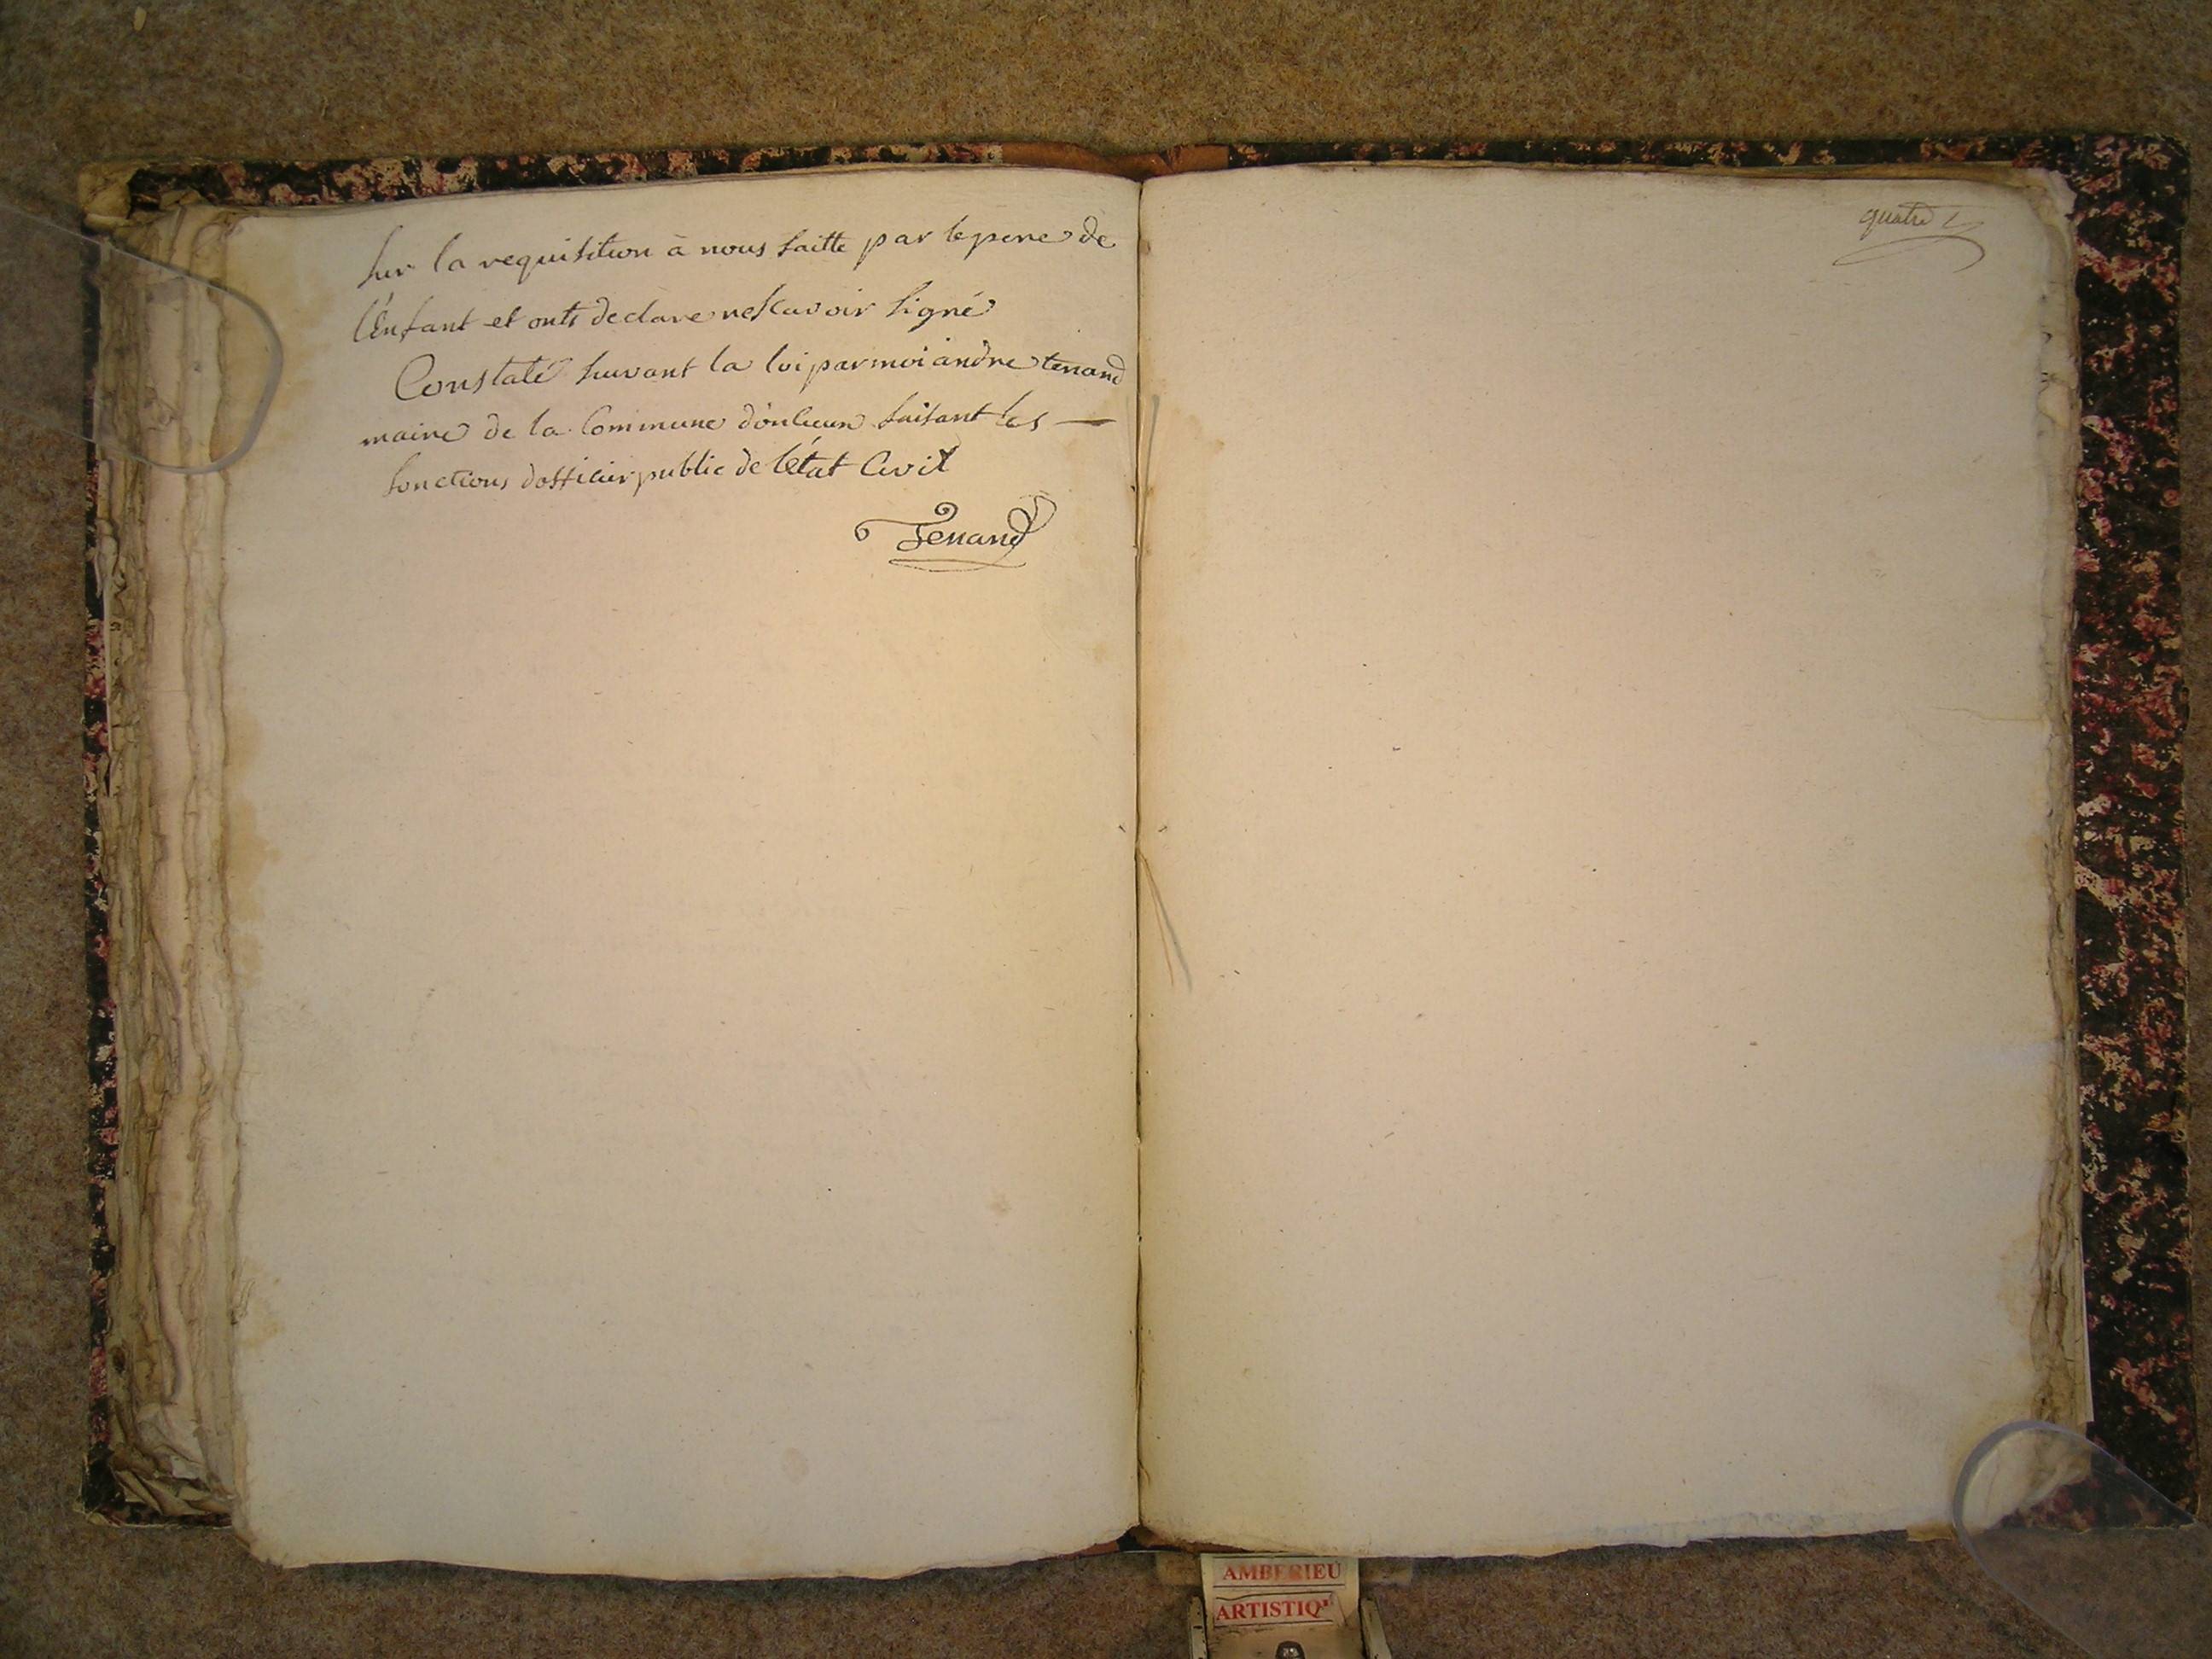 Sur la requisition à nous faitte par le pere de
l'Enfant et onts declare nescavoir signé
Constaté suivant la loi par moi andre tenand
maire de la Commune d'onlieux faisant les
fonctions dofficier public de l'état Civil
Tenand
quatre
AMBERIEU
ARTISTIQ